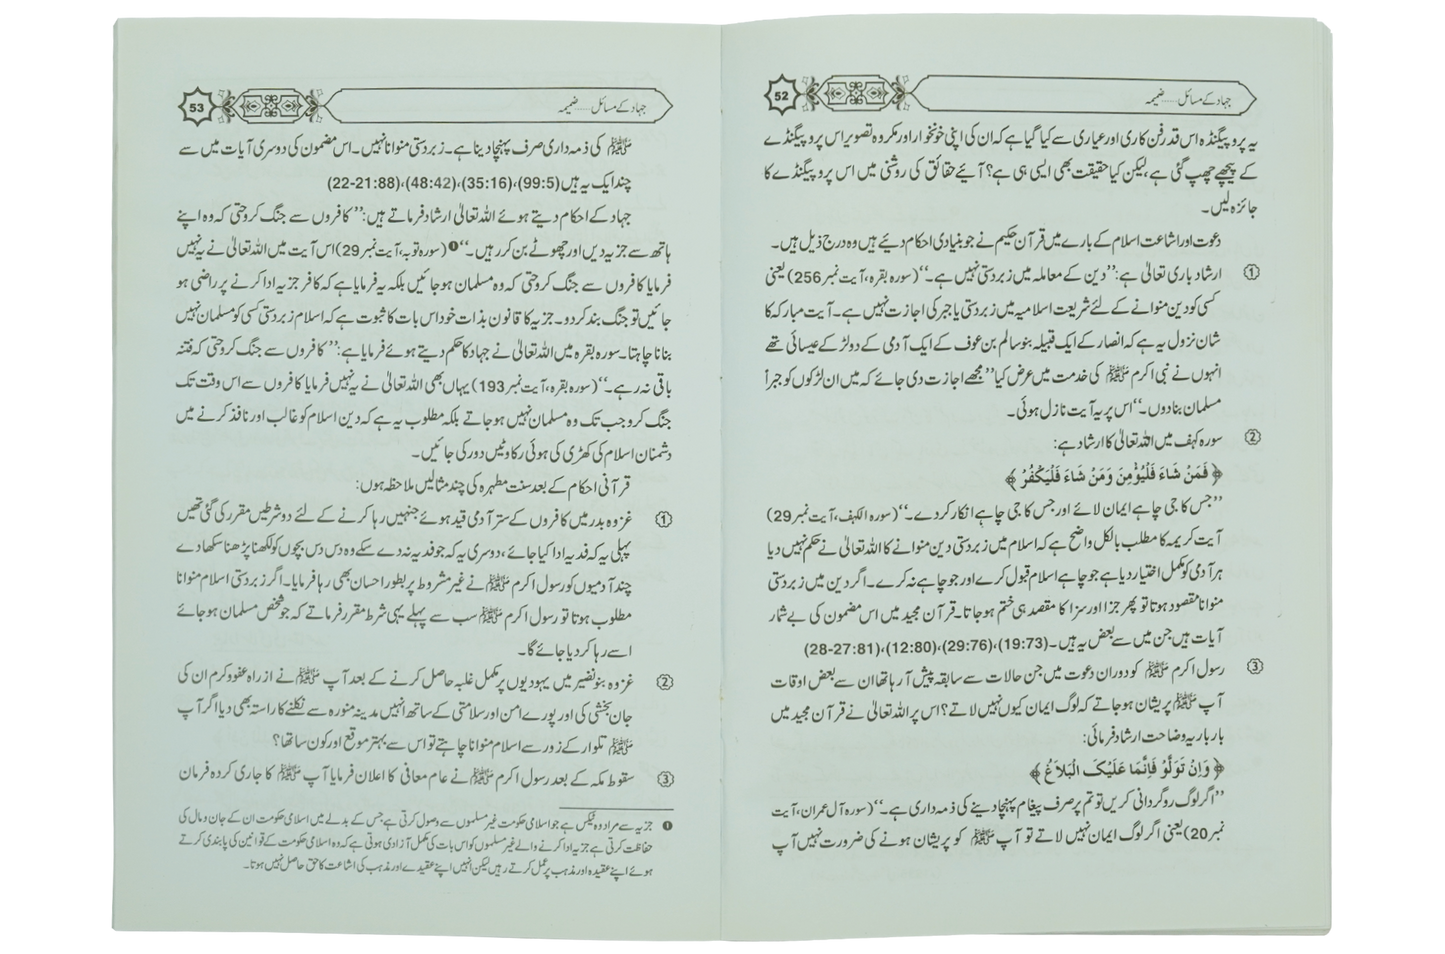 جہاد کے مسائل ..... ضمیمہ
52
یہ پروپیگنڈہ اس قدر فن کاری اور عیاری سے کیا گیا ہے کہ ان کی اپنی خونخوار اور مکروہ تصویر اس پروپیگنڈے
کے پیچھے چھپ گئی ہے، لیکن کیا حقیقت بھی ایسی ہی ہے؟ آیئے حقائق کی روشنی میں اس پروپیگنڈے کا
جائزہ لیں۔
دعوت اور اشاعت اسلام کے بارے میں قرآن حکیم نے جو بنیادی احکام دیئے ہیں وہ درج ذیل ہیں۔
① ارشاد باری تعالیٰ ہے: ’’دین کے معاملہ میں زبردستی نہیں ہے۔‘‘ (سورہ بقرہ، آیت نمبر 256) یعنی
کسی کو دین منوانے کے لئے شریعت اسلامیہ میں زبردستی یا جبر کی اجازت نہیں ہے۔ آیت مبارکہ کا
شان نزول یہ ہے کہ انصار کے ایک قبیلہ بنو سالم بن عوف کے ایک آدمی کے دو لڑکے عیسائی تھے
انہوں نے نبی اکرم ﷺ کی خدمت میں عرض کیا ’’مجھے اجازت دی جائے کہ میں ان لڑکوں کو جبراً
مسلمان بنا دوں۔‘‘ اس پر یہ آیت نازل ہوئی۔
② سورہ کہف میں اللہ تعالیٰ کا ارشاد ہے:
﴿ فَمَنْ شَاءَ فَلْيُؤْمِنْ وَمَنْ شَاءَ فَلْيَكْفُرْ ﴾
’’جس کا جی چاہے ایمان لائے اور جس کا جی چاہے انکار کر دے۔‘‘ (سورہ الکہف، آیت نمبر 29)
آیت کریمہ کا مطلب بالکل واضح ہے کہ اسلام میں زبردستی دین منوانے کا اللہ تعالیٰ نے حکم نہیں دیا
ہر آدمی کو مکمل اختیار دیا ہے جو چاہے اسلام قبول کرے اور جو چاہے نہ کرے۔ اگر دین میں زبردستی
منوانا مقصود ہوتا تو پھر جزا اور سزا کا مقصد ہی ختم ہو جاتا۔ قرآن مجید میں اس مضمون کی بے شمار
آیات ہیں جن میں سے بعض یہ ہیں۔ (19:73)، (29:76)، (12:80)، (28-27:81)
③ رسول اکرم ﷺ کو دوران دعوت میں جن حالات سے سابقہ پیش آ رہا تھا ان سے بعض اوقات
آپ ﷺ پریشان ہو جاتے کہ لوگ ایمان کیوں نہیں لاتے؟ اس پر اللہ تعالیٰ نے قرآن مجید میں
بار بار یہ وضاحت ارشاد فرمائی:
﴿ وَاِنْ تَوَلَّوْ فَاِنَّمَا عَلَيْكَ الْبَلَاغُ ﴾
’’اگر لوگ روگردانی کریں تو تم پر صرف پیغام پہنچا دینے کی ذمہ داری ہے۔‘‘ (سورہ آل عمران، آیت
نمبر 20) یعنی اگر لوگ ایمان نہیں لاتے تو آپ ﷺ کو پریشان ہونے کی ضرورت نہیں آپ
جہاد کے مسائل ..... ضمیمہ
53
ﷺ کی ذمہ داری صرف پہنچا دینا ہے۔ زبردستی منوانا نہیں۔ اس مضمون کی دوسری آیات میں سے
چند ایک یہ ہیں (99:5)، (35:16)، (48:42)، (22-21:88)
جہاد کے احکام دیتے ہوئے اللہ تعالیٰ ارشاد فرماتے ہیں: ’’کافروں سے جنگ کرو حتی کہ وہ اپنے
ہاتھ سے جزیہ دیں اور چھوٹے بن کر رہیں۔‘‘ ❶ (سورہ توبہ، آیت نمبر 29) اس آیت میں اللہ تعالیٰ نے یہ نہیں
فرمایا کافروں سے جنگ کرو حتی کہ وہ مسلمان ہو جائیں بلکہ یہ فرمایا ہے کہ کافر جزیہ ادا کرنے پر راضی ہو
جائیں تو جنگ بند کر دو۔ جزیہ کا قانون بذات خود اس بات کا ثبوت ہے کہ اسلام زبردستی کسی کو مسلمان نہیں
بنانا چاہتا۔ سورہ بقرہ میں اللہ تعالیٰ نے جہاد کا حکم دیتے ہوئے فرمایا ہے: ’’کافروں سے جنگ کرو حتی کہ فتنہ
باقی نہ رہے۔‘‘ (سورہ بقرہ، آیت نمبر 193) یہاں بھی اللہ تعالیٰ نے یہ نہیں فرمایا کافروں سے اس وقت تک
جنگ کرو جب تک وہ مسلمان نہیں ہو جاتے بلکہ مطلوب یہ ہے کہ دین اسلام کو غالب اور نافذ کرنے میں
دشمنان اسلام کی کھڑی کی ہوئی رکاوٹیں دور کی جائیں۔
قرآنی احکام کے بعد سنت مطہرہ کی چند مثالیں ملاحظہ ہوں:
① غزوہ بدر میں کافروں کے ستر آدمی قید ہوئے جنہیں رہا کرنے کے لئے دو شرطیں مقرر کی گئی تھیں
پہلی یہ کہ فدیہ ادا کیا جائے، دوسری یہ کہ جو فدیہ نہ دے سکے وہ دس دس بچوں کو لکھنا پڑھنا سکھا دے
چند آدمیوں کو رسول اکرم ﷺ نے غیر مشروط پر بطور احسان بھی رہا فرمایا۔ اگر زبردستی اسلام منوانا
مطلوب ہوتا تو رسول اکرم ﷺ سب سے پہلے یہی شرط مقرر فرماتے کہ جو شخص مسلمان ہو جائے
اسے رہا کر دیا جائے گا۔
② غزوہ بنو نضیر میں یہودیوں پر مکمل غلبہ حاصل کرنے کے بعد آپ ﷺ نے از راہ عفو و کرم ان کی
جان بخشی کی اور پورے امن اور سلامتی کے ساتھ انہیں مدینہ منورہ سے نکلنے کا راستہ بھی دیا اگر آپ
ﷺ تلوار کے زور سے اسلام منوانا چاہتے تو اس سے بہتر موقع اور کون سا تھا؟
③ سقوط مکہ کے بعد رسول اکرم ﷺ نے عام معافی کا اعلان فرمایا آپ ﷺ کا جاری کردہ فرمان
❶ جزیہ سے مراد وہ ٹیکس ہے جو اسلامی حکومت غیر مسلموں سے وصول کرتی ہے جس کے بدلے میں اسلامی حکومت ان کے جان و مال کی
حفاظت کرتی ہے جزیہ ادا کرنے والے غیر مسلموں کو اس بات کی مکمل آزادی ہوتی ہے کہ وہ اسلامی حکومت کے قوانین کی پابندی کرتے
ہوئے اپنے عقیدہ اور مذہب پر عمل کرتے رہیں لیکن انہیں اپنے عقیدے اور مذہب کی اشاعت کا حق حاصل نہیں ہوتا۔